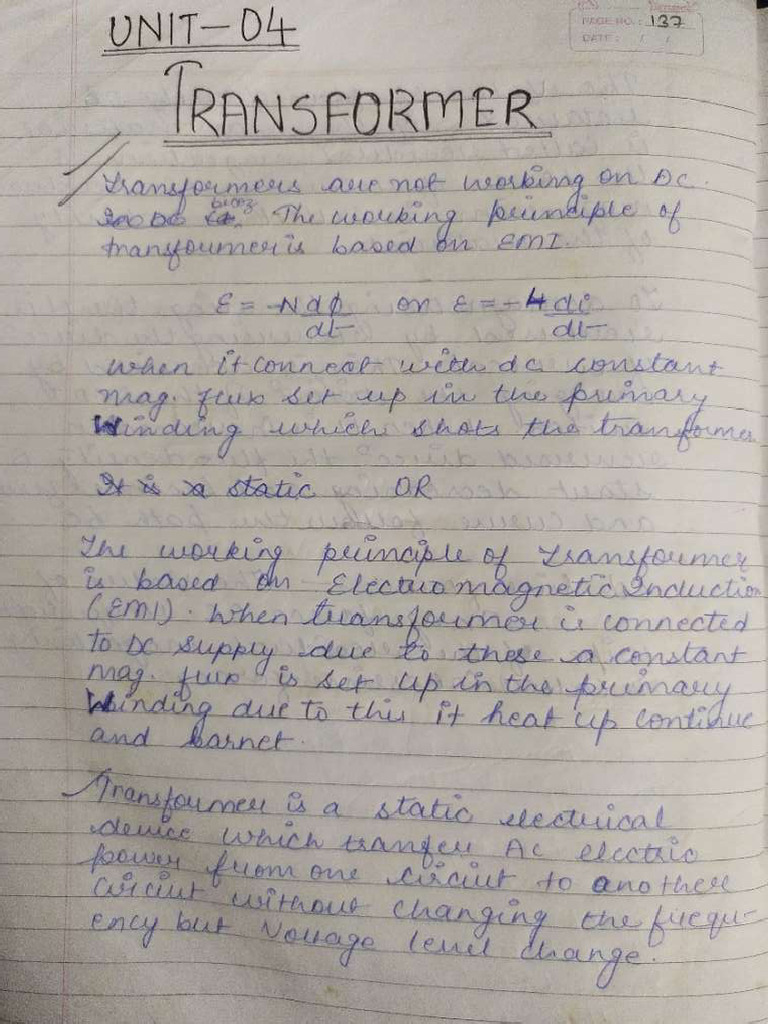 UNIT-04
PAGE NO.: 137
DATE: / /
TRANSFORMER
Transformers are not working on DC.
The working principle of
transformer is based on EMI.
ε = -N dφ/dt or ε = -L di/dt
when it connect with dc constant
mag. flux set up in the primary
Winding which shots the transformer
It is a static OR
The working principle of Transformer
is based on Electromagnetic Induction
(EMI). When transformer is connected
to DC supply due to these a constant
mag. flux is set up in the primary
Winding due to this it heat up continue
and
Transformer is a static electrical
device which tranfer AC electric
power from one circiut to another
circiut without changing the frequ-
ency but Voltage level change.